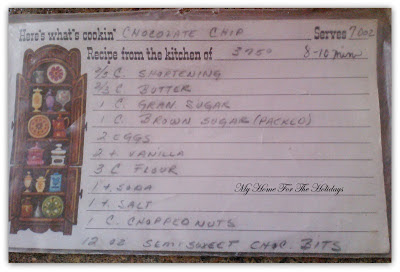 Here's what's cookin' CHOCOLATE CHIP Serves 7 DOZ
Recipe from the kitchen of 375° 8-10 min
2/3 C. SHORTENING
2/3 C. BUTTER
1 C. GRAN SUGAR
1 C. BROWN SUGAR (PACKED)
2 EGGS
2 t. VANILLA
3 C FLOUR
1 t. SODA
1 t. SALT
My Home For The Holidays
1 C. CHOPPED NUTS
12 OZ SEMI SWEET CHOC. BITS